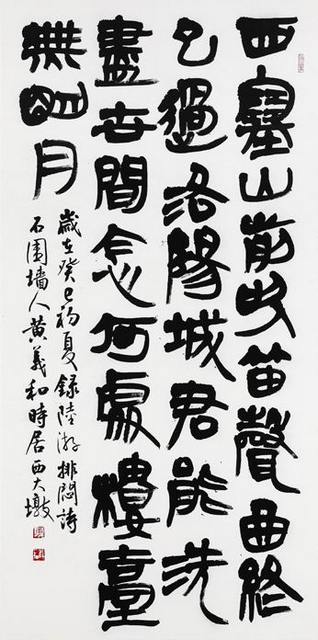 西塞山前吹笛聲曲終
已過洛陽城君能洗
盡世間念何處樓臺
無明月
歲在癸巳初夏錄陸游排悶詩
石圍墻人黃義和時居西大墩